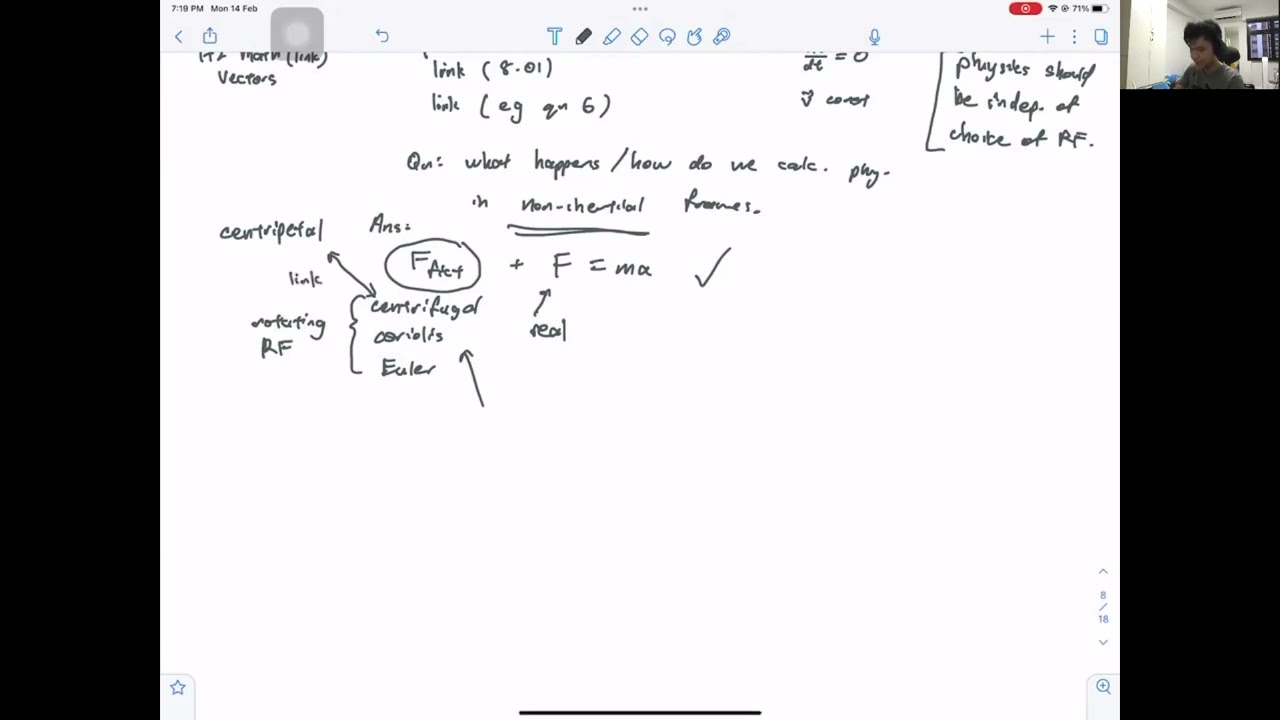 7:19 PM Mon 14 Feb
71%
H2 Math (link)
Vectors
link (8.01)
link (eg qn 6)
dt = 0
v const
physics should
be indep. of
choice of RF.
Qn: what happens / how do we calc. phy.
in non-inertial frames.
centripetal
Ans:
link
F + F = ma
centrifugal
coriolis
Euler
rotating
RF
real
8
/
18